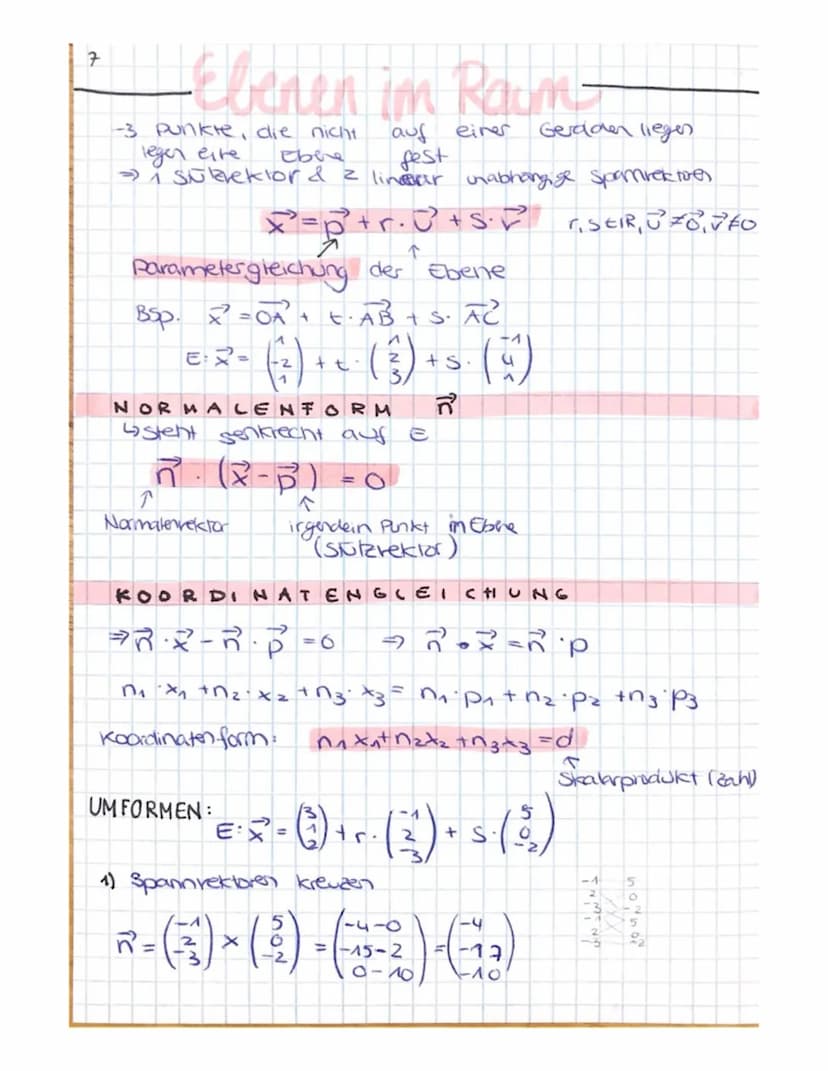 7
Ebenen im Raum
-3 Punkte, die nicht auf einer Geraden liegen
legen eine Ebene fest
⇒ 1 Stützvektor & 2 linear unabhängige Spannvektoren
x⃗ = p⃗ + r · u⃗ + s · v⃗ r, s ∈ ℝ, u⃗ ≠ 0⃗, v⃗ ≠ 0
Parametergleichung der Ebene
Bsp. x⃗ = OA⃗ + t · AB⃗ + s · AC⃗
E: x⃗ = (1 -2 1) + t · (1 2 3) + s · (-1 4 1)
NORMALENFORM n⃗
↳ steht senkrecht auf E
n⃗ · (x⃗ - p⃗) = 0
Normalenvektor irgendein Punkt in Ebene
(Stützvektor)
KOORDINATENGLEICHUNG
⇒ n⃗ · x⃗ - n⃗ · p⃗ = 0 ⇒ n⃗ • x⃗ = n⃗ · p
n₁ · x₁ + n₂ · x₂ + n₃ · x₃ = n₁ · p₁ + n₂ · p₂ + n₃ · p₃
Koordinatenform: n₁x₁ + n₂x₂ + n₃x₃ = d
Skalarprodukt (Zahl)
UMFORMEN:
E: x⃗ = (3 1 2) + r · (-1 2 -3) + s · (5 0 -2)
1) Spannvektoren kreuzen
n⃗ = (-1 2 -3) × (5 0 -2) = (-4-0 -15-2 0-10) = (-4 -17 -10)
-1 5
2 0
-3 -2
-1 5
2 0
-3 -2